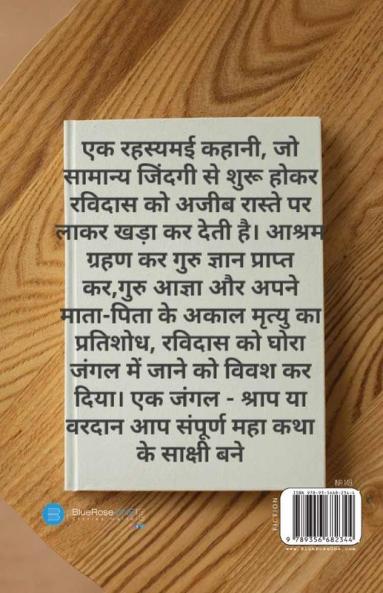 एक रहस्यमई कहानी, जो
सामान्य जिंदगी से शुरू होकर
रविदास को अजीब रास्ते पर
लाकर खड़ा कर देती है। आश्रम
ग्रहण कर गुरु ज्ञान प्राप्त
कर,गुरु आज्ञा और अपने
माता-पिता के अकाल मृत्यु का
प्रतिशोध, रविदास को घोरा
जंगल में जाने को विवश कर
दिया। एक जंगल - श्राप या
वरदान आप संपूर्ण महा कथा
के साक्षी बने
BlueRose
FICTION
ISBN 978-93-5668-234-4
9 789356 682344
www.BlueRoseOne.com